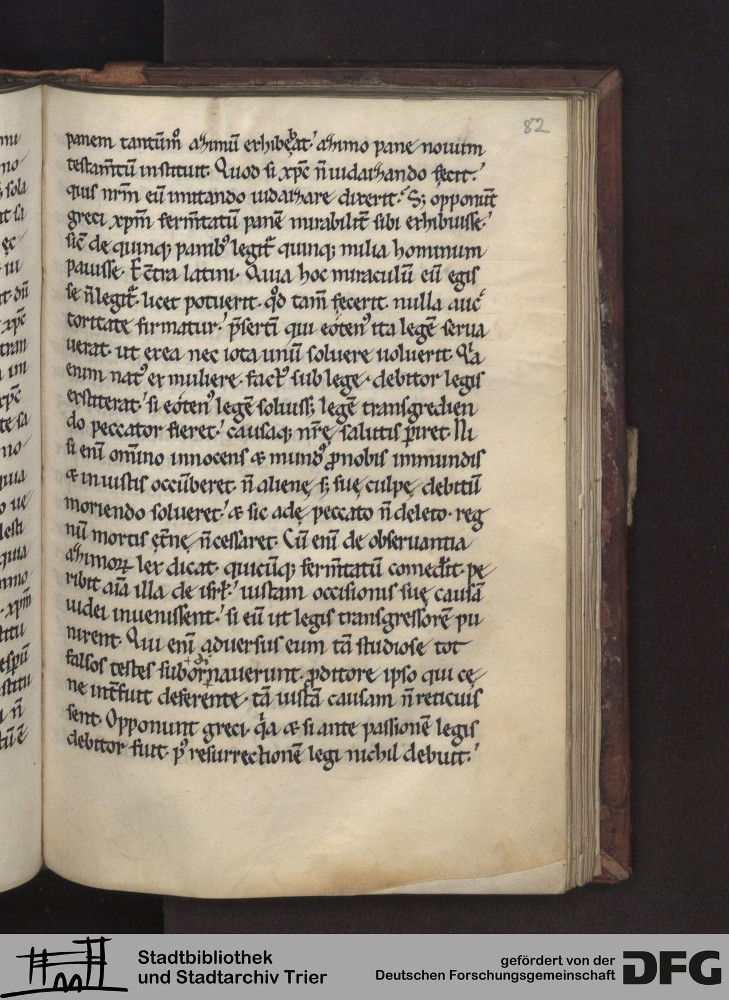 82
panem tantūm̊ aʒimū exhibebat. aʒimo pane nouum
testam̄tū instituit. Quod si xp̄c n̄ iudaiʒando fecit.
quis nr̄m eū imitando iudaiʒare dixerit. S; opponūt
greci xp̄m ferm̄tatū panē mirabilit̄ sibi exhibuisse.
sic̄ de quinq; panib᷒ legit̄ quinq; milia hominum
pauisse. Ec̄tra latini. Quia hoc miraculū eū egis
se n̄ legit̄. licet potuerit. qd̊ tam̄ fecerit. nulla auc
toritate firmatur. p̄serti qui eoten᷒ ita legē serua
uerat. ut ex ea nec iota unū soluere uoluerit. Qa
enim nat᷒ ex muliere. fact᷒ sub lege. debitor legis
exstiterat. si eoten᷒ legē soluiss; legē transgredien
do peccator fieret. causaq; nr̄ę salutis ꝑiret. Ni
si enī om̄ino innocens & mund᷒ ꝓ nobis immundis
& iniustis occūberet. n̄ alienę s; suę culpę debitū
moriendo solueret. & sic adę peccato n̄ deleto. reg
nū mortis ęt̄nę n̄ cessaret. Cū enī de obseruantia
aʒimoꝝ lex dicat. quicūq; ferm̄tatū comedit. pe
ribit aīa illa de isrl̄. iustam occisionis suę causā
iudei inuenissent. si eū ut legis transgressorē pu
nirent. Qui enī aduersus eum tā studiose tot
falsos testes subornauerunt. ꝓditore ipso qui cę
ne int̄fuit deferente. tā iustā causam n̄ reticuis
sent. Opponunt greci. qa & si ante passionē legis
debitor fuit. p᷒ resurrectionē legi nichil debuit.
Stadtbibliothek
und Stadtarchiv Trier
gefördert von der
Deutschen Forschungsgemeinschaft
DFG